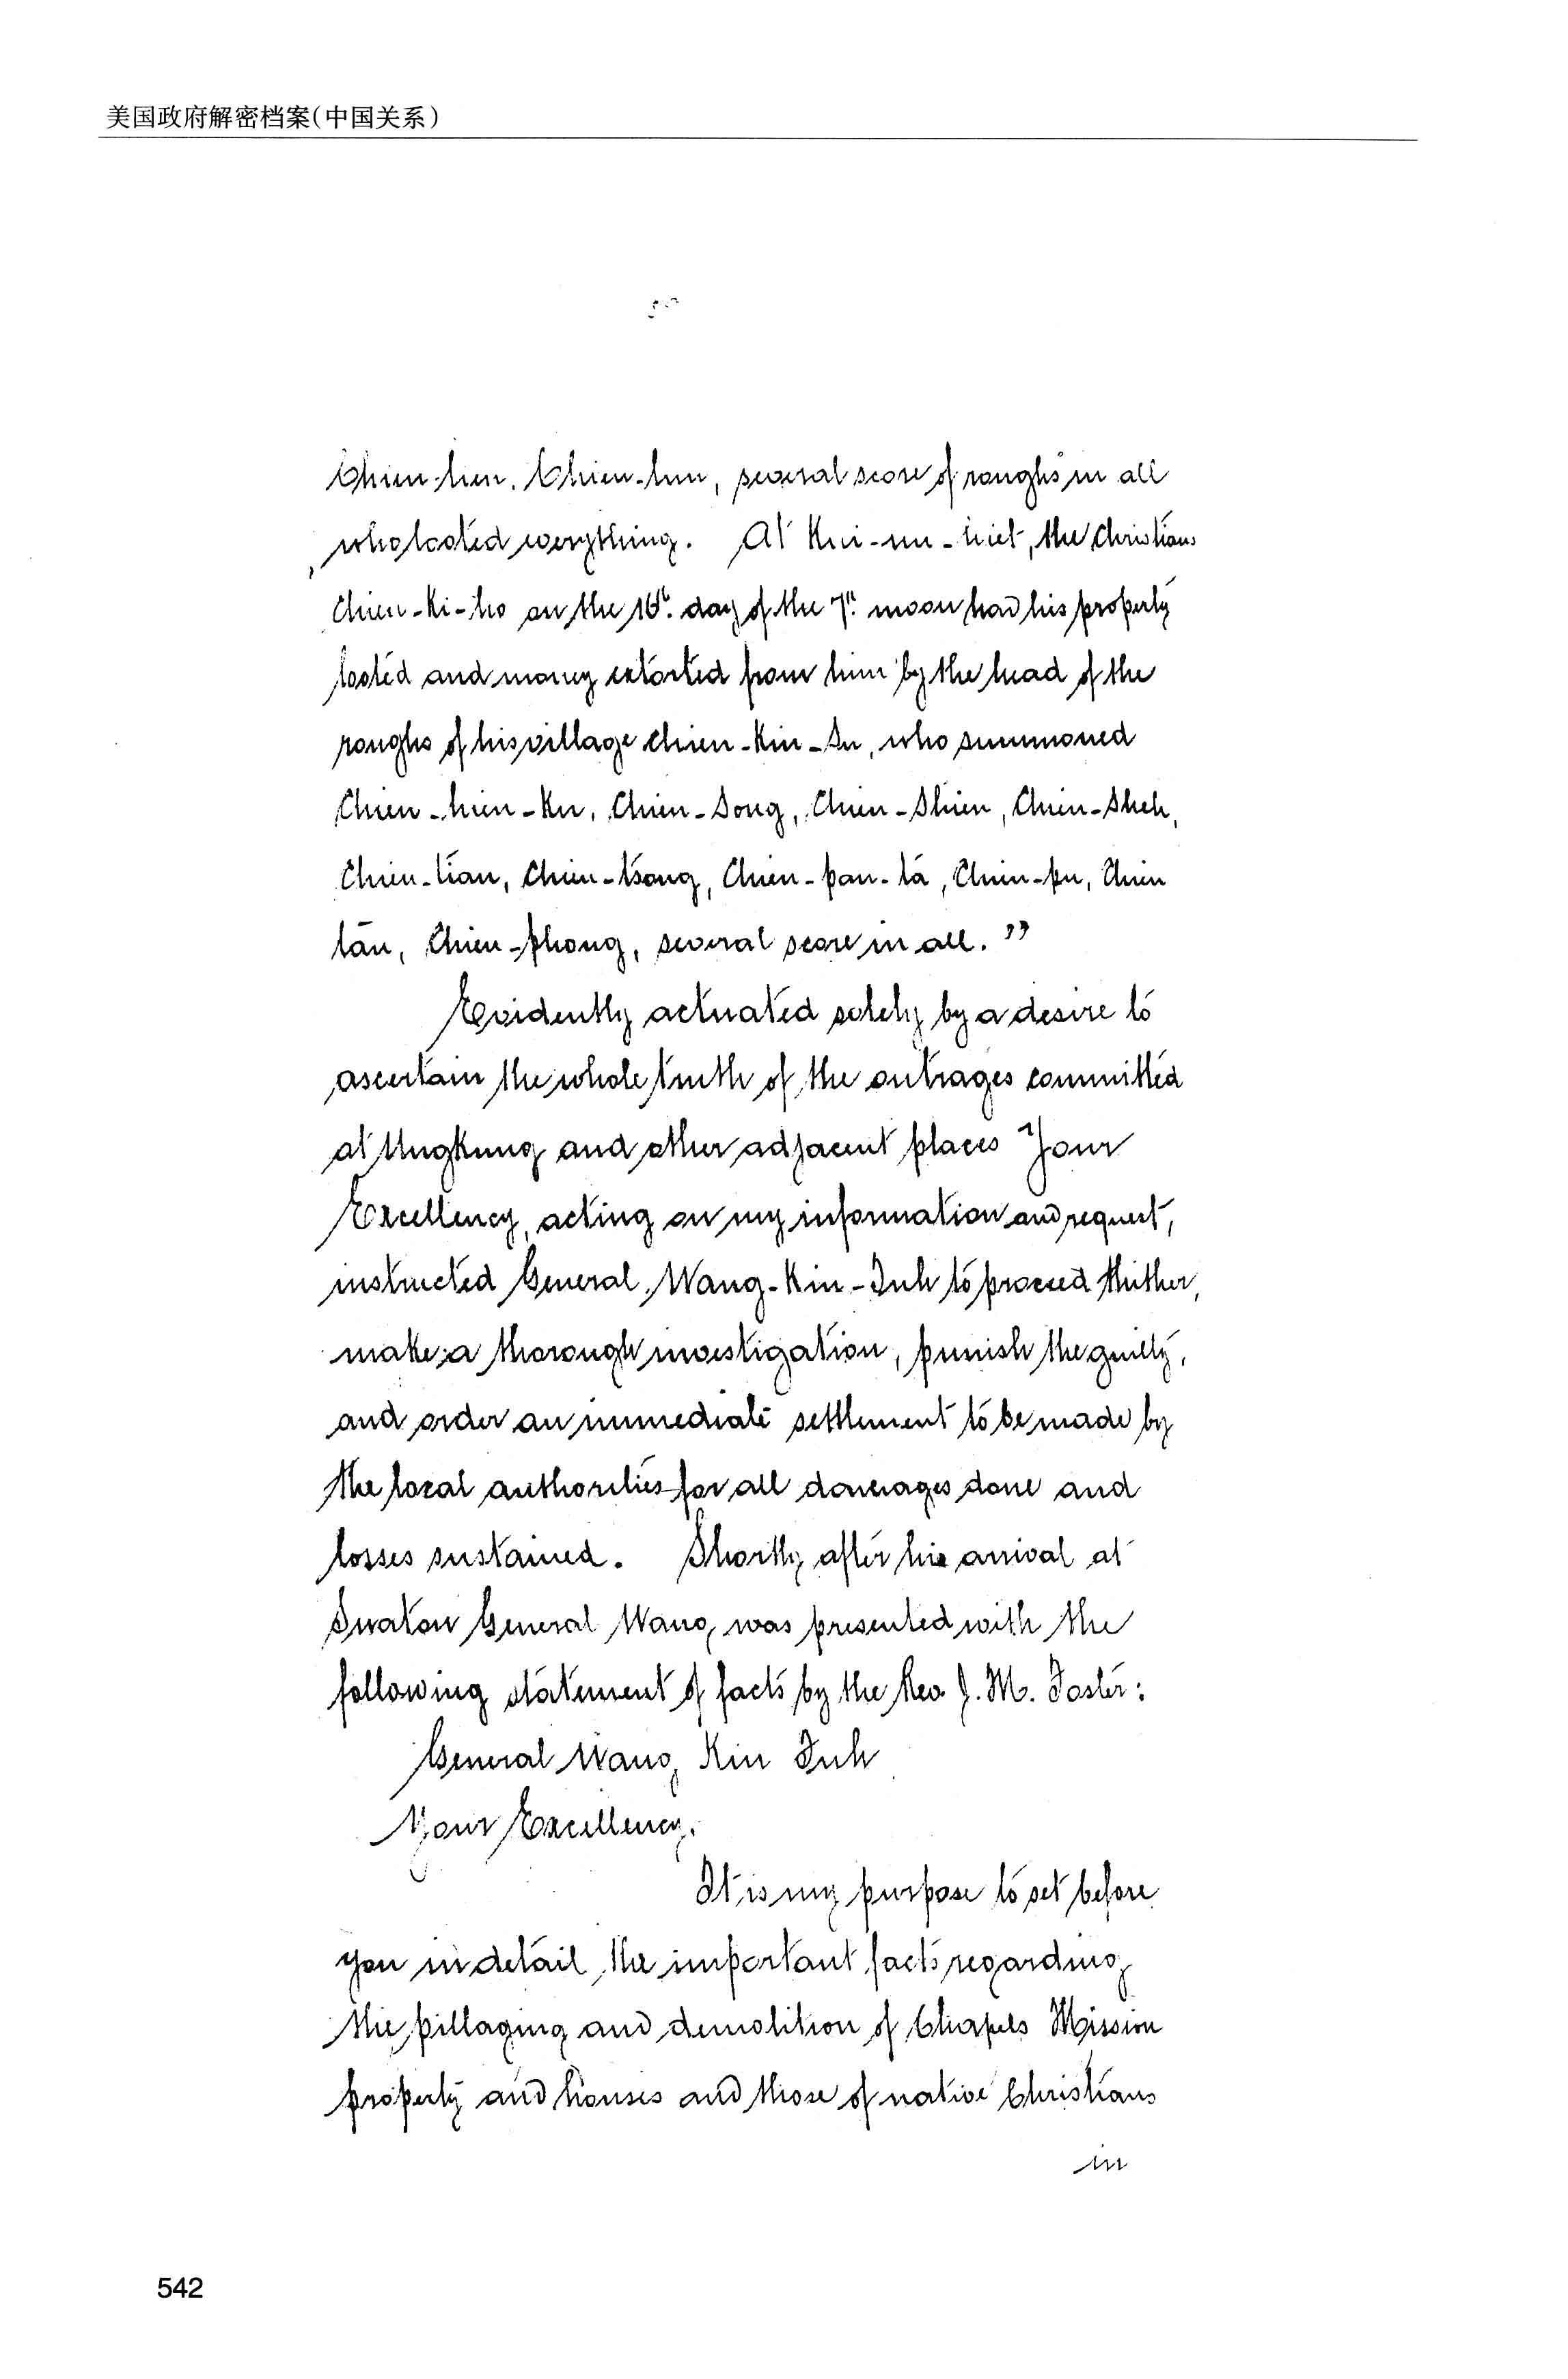 美国政府解密档案(中国关系)
Chien-hen, Chien-hun, several score of roughs in all
who looted everything. At the Christian
Chien-Ki-ho on the 16". day of the 7". moon had his property
looted and money extorted from him by the head of the
roughs of his village Chien-Kin-Su, who summoned
Chien-hien-Ku, Chien-Song, Chien-Shien, Chien-Sheh,
Chien-tian, Chien-tsong, Chien-pan-ta, Chien-pu, Chien
tan, Chien-phong, several score in all."
Evidently actuated solely by a desire to
ascertain the whole truth of the outrages committed
at Ungkung and other adjacent places Your
Excellency, acting on my information and request,
instructed General Wang-Kin-Fuh to proceed thither,
make a thorough investigation, punish the guilty,
and order an immediate settlement to be made by
the local authorities for all damages done and
losses sustained. Shortly after his arrival at
Swatow General Wang was presented with the
following statement of facts by the Rev. J. M. Foster:
General Wang Kin Fuh
Your Excellency.
It is my purpose to set before
you in detail the important facts regarding
the pillaging and demolition of Chapels Mission
property and houses and those of native Christians
in
542